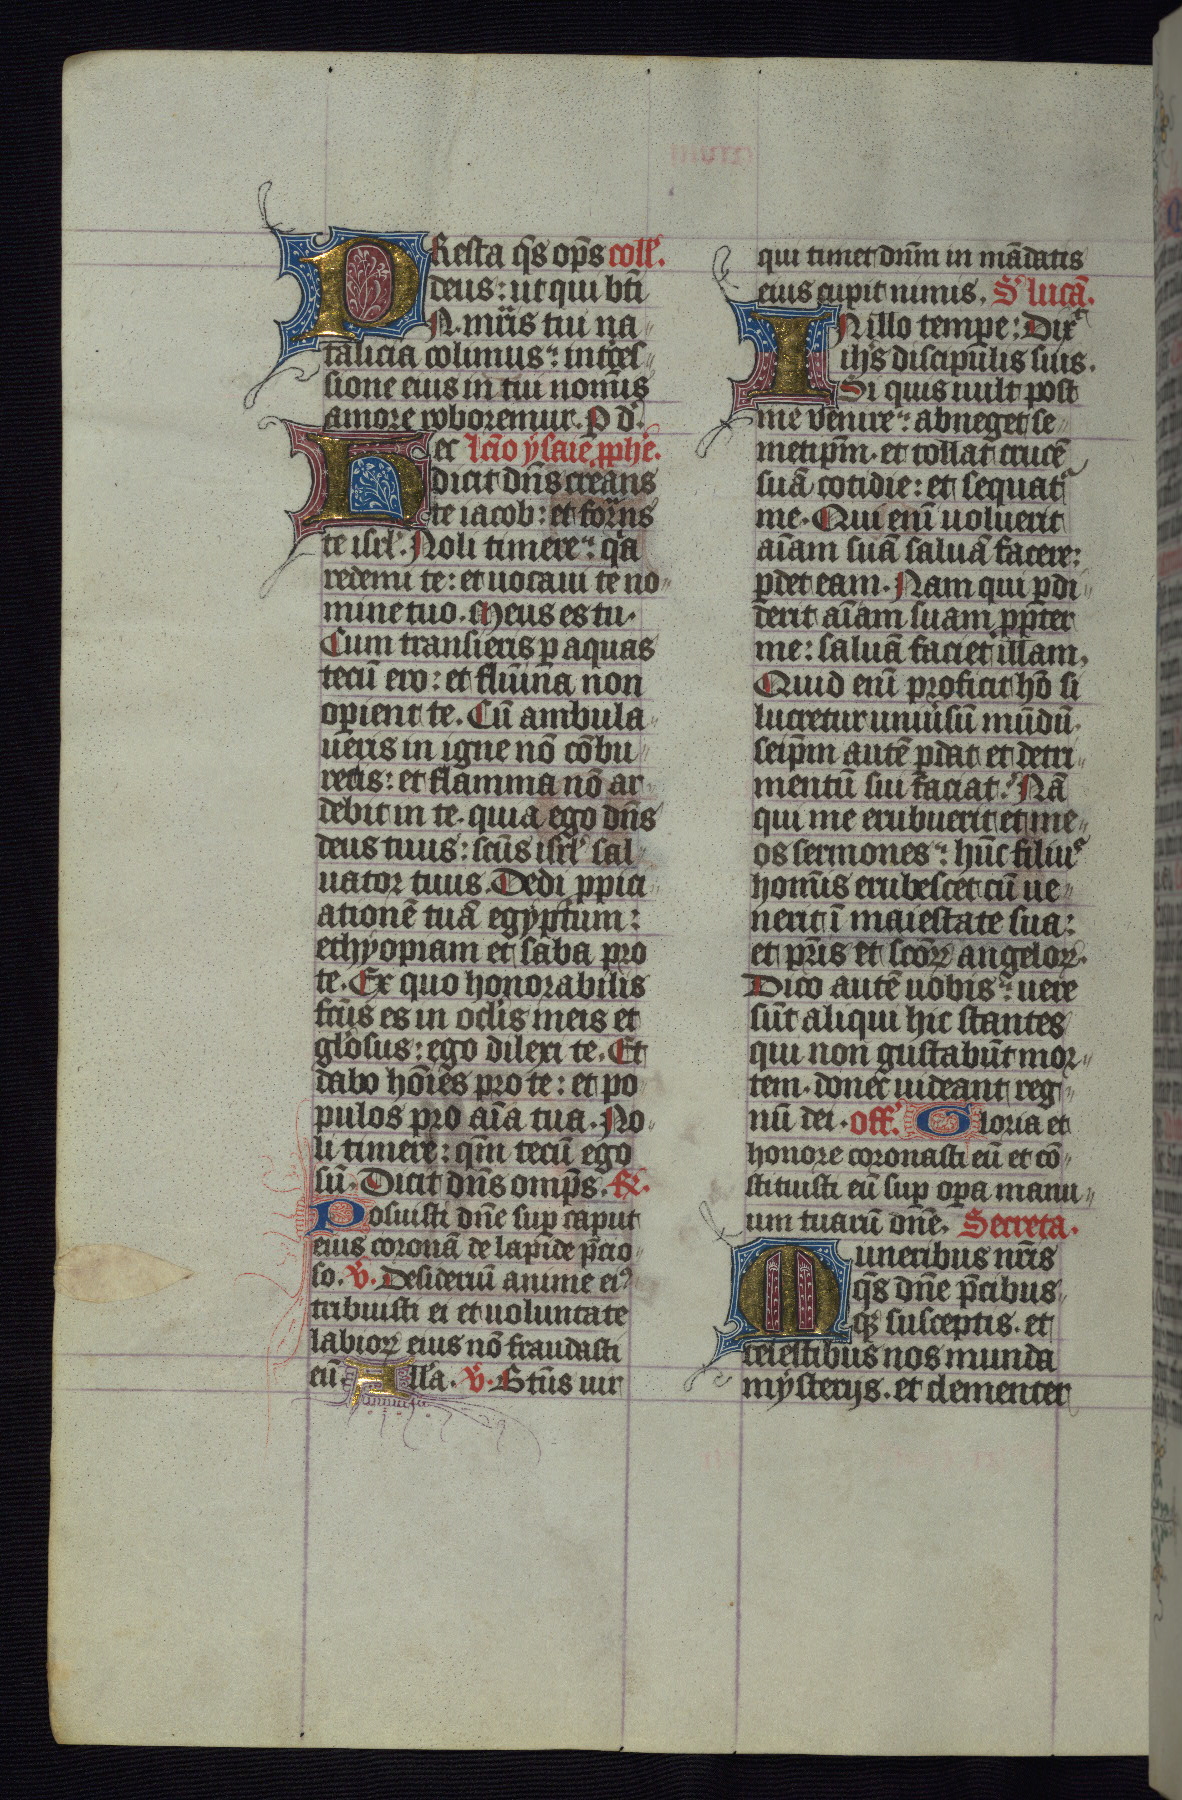 PResta q̄s op̄s coll'.
deus: ut qui bt̄i
N. mr̄is tui na
talicia colimus: int̄ces
sione eius in tui nom̄is
amore roboremur. p d'.
Hec lc̄io ysaie p̱phe.
dicit dn̄s creans
te iacob: et form̄s
te isrl'. Noli timere: q̄a
redemi te: et uocaui te no
mine tuo. Meus es tu.
Cum transieris p aquas
tecū ero: et flumina non
opient te. Cū ambula
ueris in igne nō cōbu
reris: et flamma nō ar
debit in te. quia ego dn̄s
deus tuus: sc̄us isrl' sal
uator tuus. Dedi ppici
ationē tuā egyptum:
ethyopiam et saba pro
te. Ex quo honorabilis
fc̄us es in oc̄lis meis et
gl'osus: ego dilexi te. Et
dabo hōies pro te: et po
pulos pro aīa tua. No
li timere: qm̄ tecū ego
sū. Dicit dn̄s omp̄s. Gr̄.
Posuisti dn̄e sup caput
eius coronā de lapide p̄cio
so. v̄. Desideriū anime ei9
tribuisti ei et uoluntate
labioꝝ eius nō fraudasti
eū. All'a. v̄. Bt̄us uir
qui timet dn̄m in mādatis
eius cupit nimis. S' lucā.
IN illo tempe: Dix
ihs̄ discipulis suis.
Si quis uult post
me venire: abneget se
metipm̄. et tollat crucē
suā cotidie: et sequat
me. Qui enī uoluerit
aīam suā saluā facere:
pdet eam. Nam qui pdi
derit aīam suam ppter
me: saluā faciet illam.
Quid enī proficit hō si
lucretur uniūsū mūdū.
seipm̄ autē pdat et detri
mentū sui faciat. Nā
qui me erubuerit et me
os sermones: hūc filiu
hom̄is erubescet cū ue
nerit ī maiestate sua:
et pr̄is et sc̄oꝝ angeloꝝ.
Dico autē uobis: uere
sūt aliqui hic stantes
qui non gustabūt mor
tem. donec uideant reg
nū dei. off'. Gloria et
honore coronasti eū et cō
stituisti eū sup opa manu
um tuarū dn̄e. Secreta.
Muneribus nr̄is
q̄s dn̄e p̄cibus
qꝫ susceptis. et
celestibus nos munda
mysterijs. et clementer